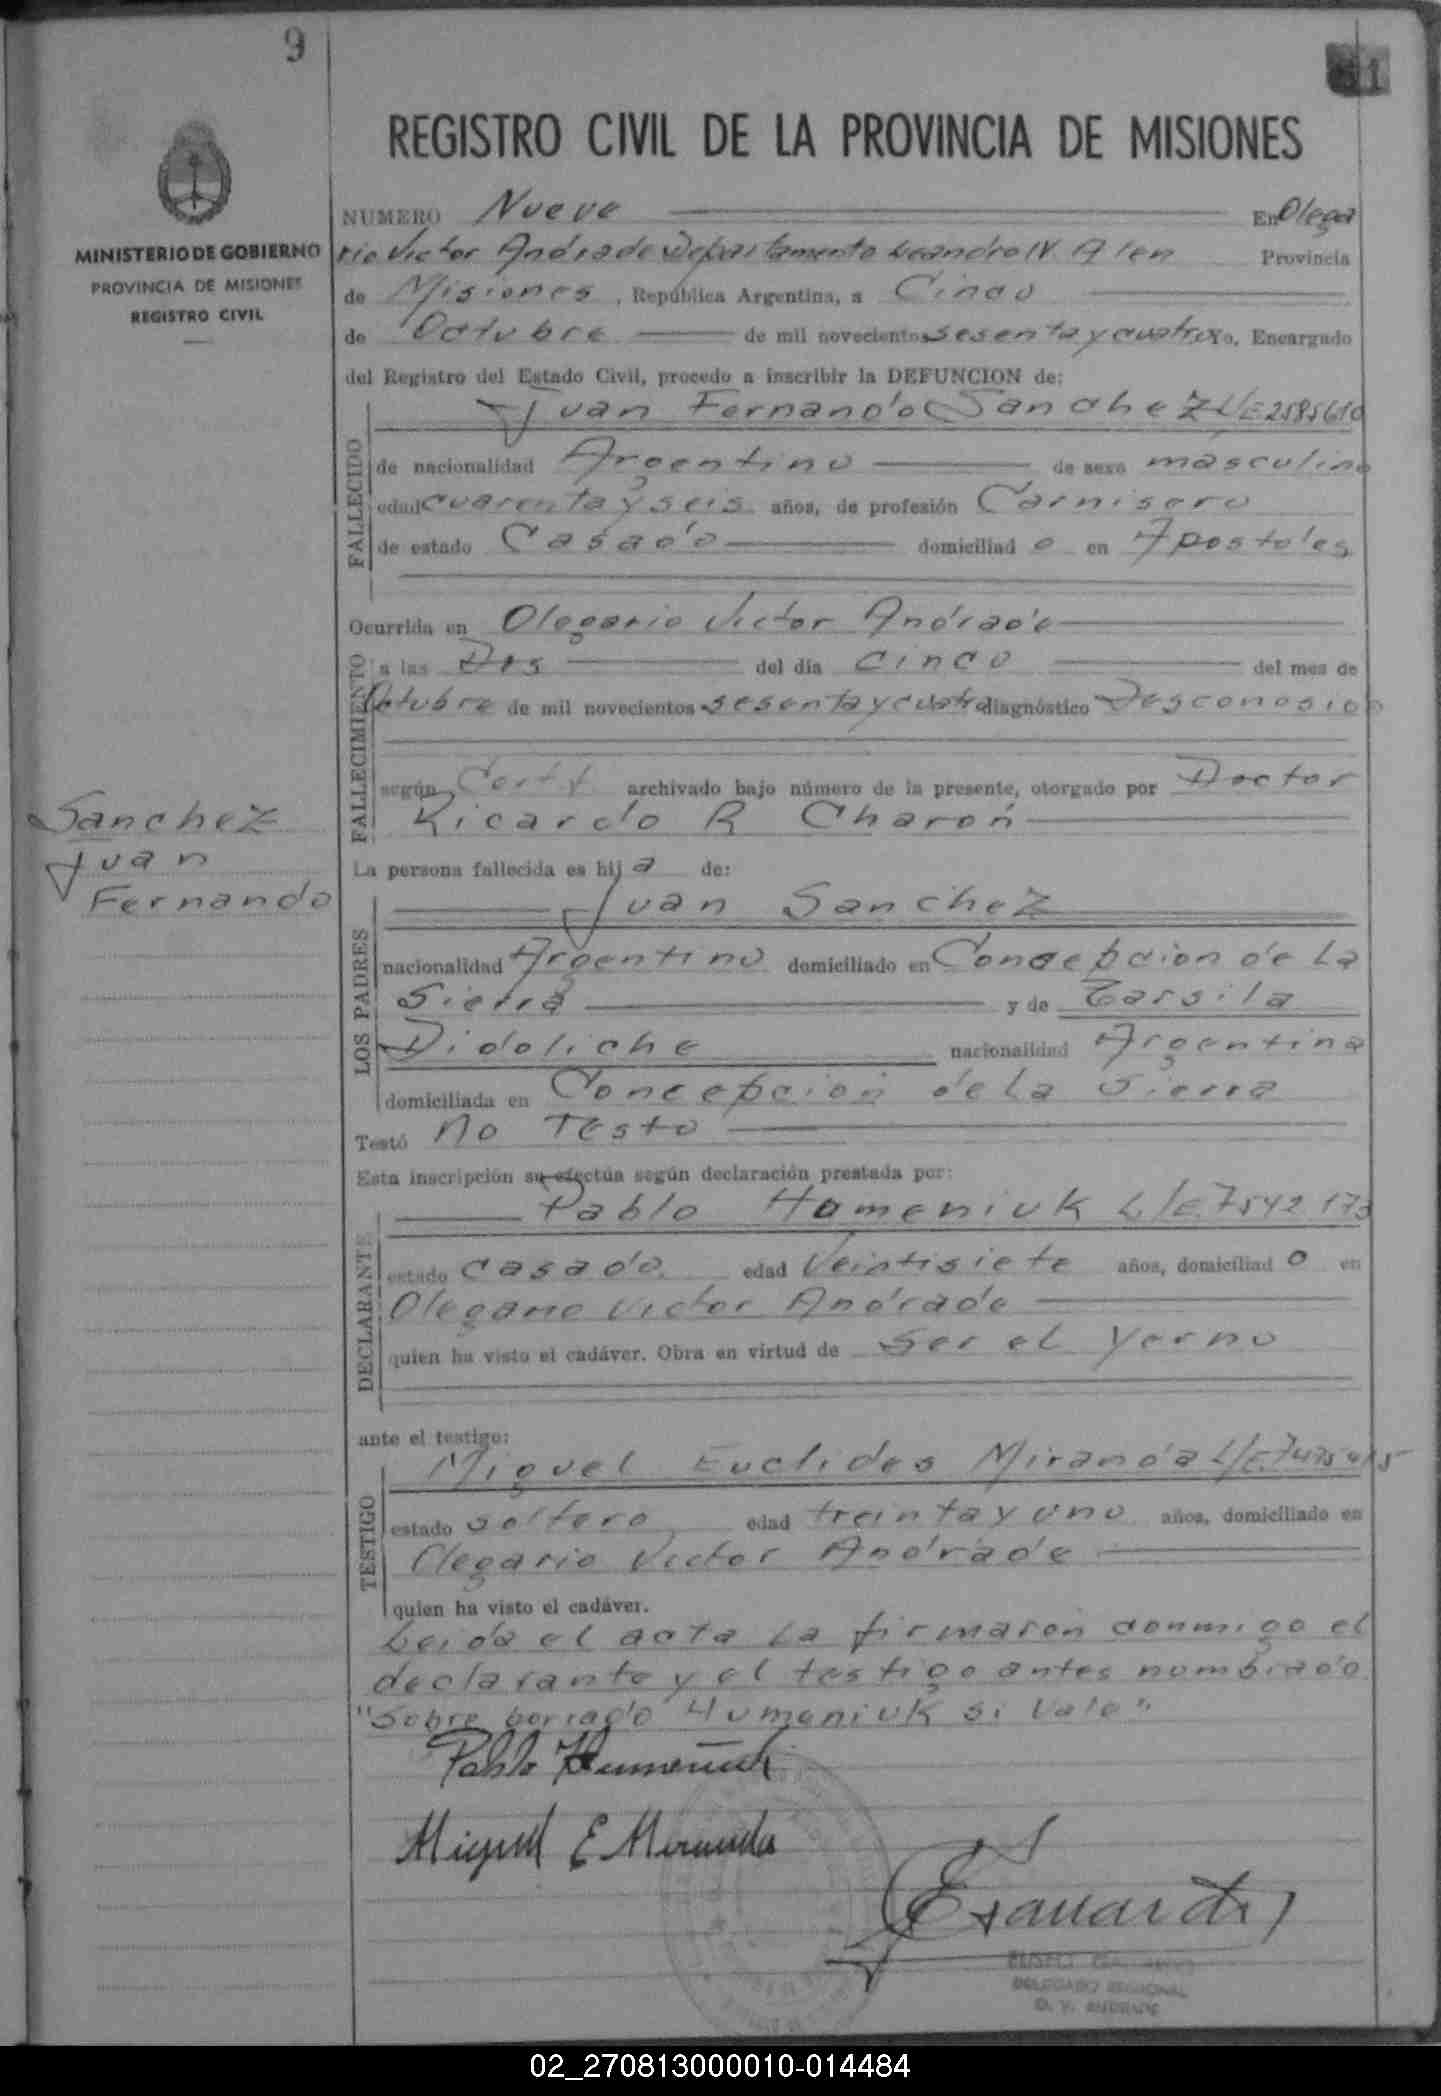 9
REGISTRO CIVIL DE LA PROVINCIA DE MISIONES
MINISTERIO DE GOBIERNO
PROVINCIA DE MISIONES
REGISTRO CIVIL
NUMERO Nueve En Olega
rio Victor Andrade Departamento Leandro N. Alen Provincia
de Misiones, República Argentina, a Cinco
de Octubre de mil novecientos sesenta y cuatro Yo, Encargado
del Registro del Estado Civil, procedo a inscribir la DEFUNCION de:
Juan Fernando Sanchez L/E 2585610
FALLECIDO
de nacionalidad Argentino de sexo masculino
edad cuarenta y seis años, de profesión Carnisero
de estado Casado domiciliad o en Apostoles
Ocurrida en Olegario Victor Andrade
FALLECIMIENTO
a las Dos del día cinco del mes de
Octubre de mil novecientos sesenta y cuatro diagnóstico Desconosido
según Certf archivado bajo número de la presente, otorgado por Doctor
Ricardo R Charon
Sanchez
Juan
Fernando
La persona fallecida es hij a de:
Juan Sanchez
LOS PADRES
nacionalidad Argentino domiciliado en Concepcion de La
Sierra y de Tarsila
Didoliche nacionalidad Argentina
domiciliada en Concepcion de La Sierra
Testó No Testo
Esta inscripción se efectúa según declaración prestada por:
Pablo Homeniuk L/E 7542173
DECLARANTE
estado casado edad Veintisiete años, domiciliad o en
Olegario Victor Andrade
quien ha visto el cadáver. Obra en virtud de Ser el Yerno
ante el testigo:
Miguel Euclides Miranda L/E 7475415
TESTIGO
estado soltero edad treinta y uno años, domiciliado en
Olegario Victor Andrade
quien ha visto el cadáver.
Leida el acta La firmaron conmigo el
declarante y el testigo antes nombrado
"Sobre borrado Humeniuk si Vale"
Pablo Humeniuk
Miguel E Miranda
DELEGADO REGIONAL
O. V. ANDRADE
02_270813000010-014484